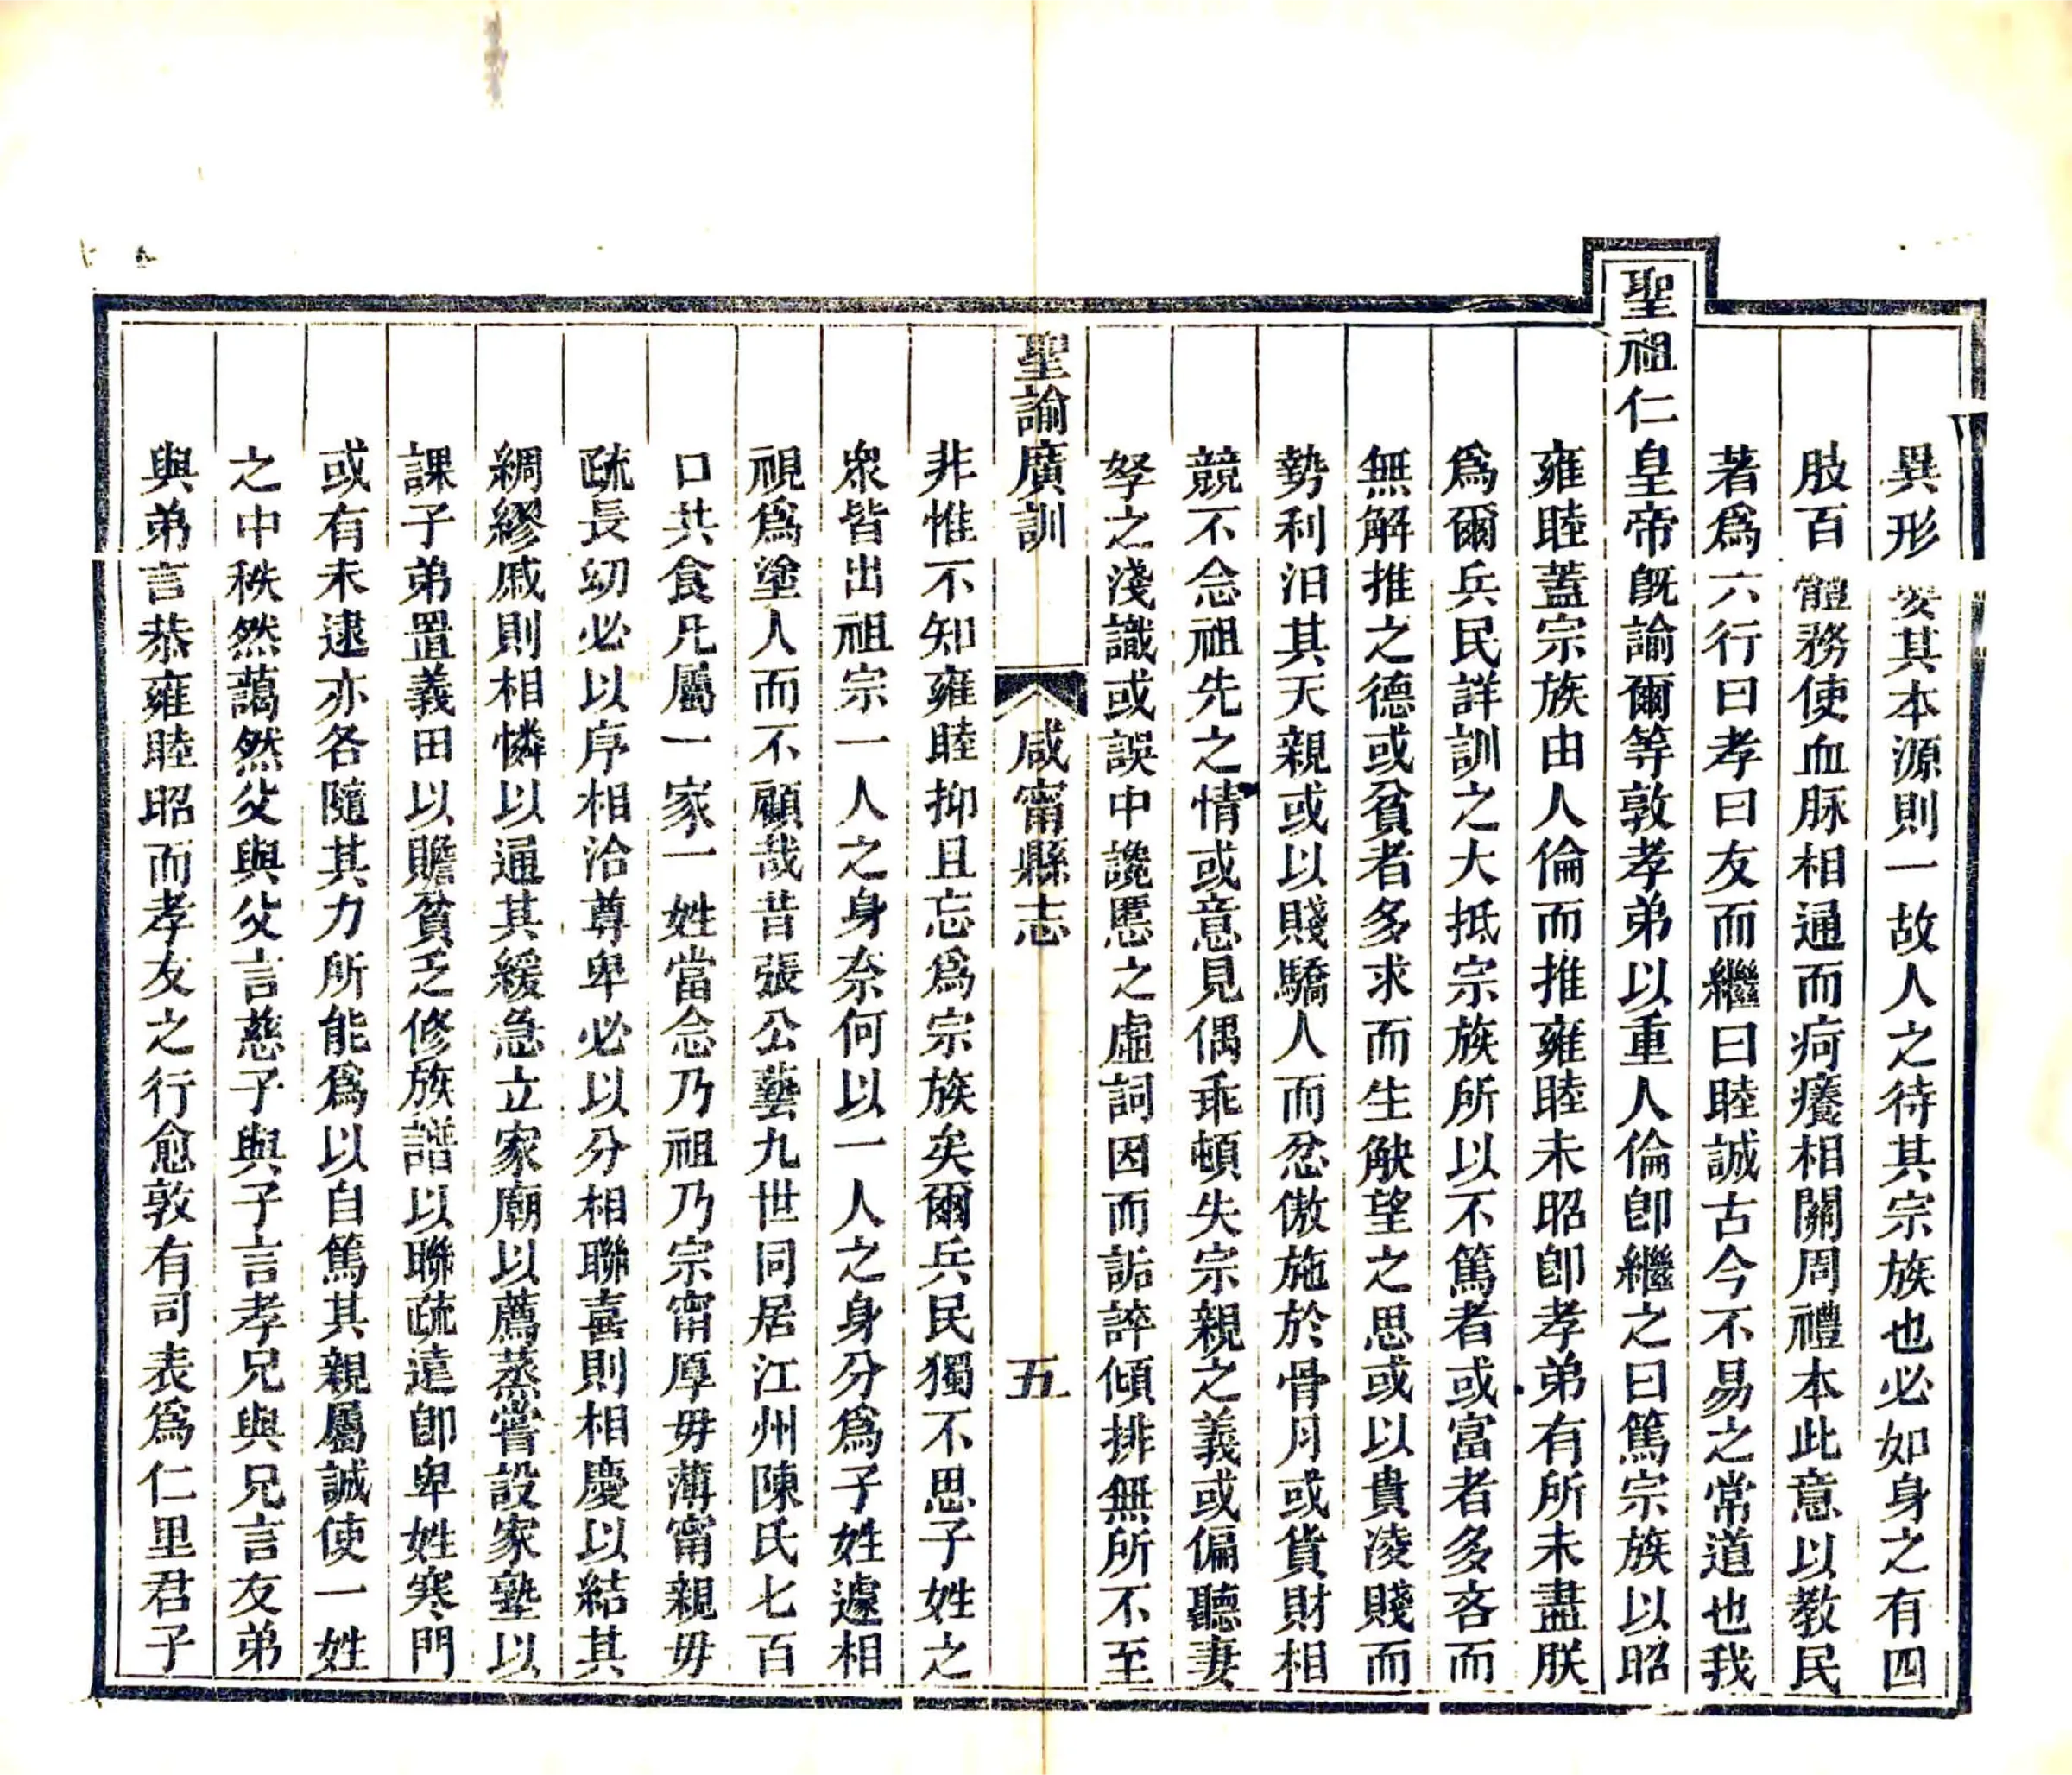 異形要其本源則一故人之待其宗族也必如身之有四
肢百體務使血脉相通而疴癢相關周禮本此意以教民
著爲六行曰孝曰友而繼曰睦誠古今不易之常道也我
聖祖仁皇帝旣諭爾等敦孝弟以重人倫卽繼之曰篤宗族以昭
雍睦蓋宗族由人倫而推雍睦未昭卽孝弟有所未盡朕
爲爾兵民詳訓之大抵宗族所以不篤者或富者多吝而
無解推之德或貧者多求而生觖望之思或以貴凌賤而
勢利汨其天親或以賤驕人而忿傲施於骨月或貨財相
競不念祖先之情或意見偶乖頓失宗親之義或偏聽妻
孥之淺識或誤中讒慝之虛詞因而詬誶傾排無所不至
聖諭廣訓 咸甯縣志 五
非惟不知雍睦抑且忘爲宗族矣爾兵民獨不思子姓之
衆皆出祖宗一人之身奈何以一人之身分爲子姓遽相
視爲塗人而不顧哉昔張公藝九世同居江州陳氏七百
口共食凡屬一家一姓當念乃祖乃宗甯厚毋薄甯親毋
疏長幼必以序相洽尊卑必以分相聯喜則相慶以結其
綢繆戚則相憐以通其緩急立家廟以薦蒸嘗設家塾以
課子弟置義田以贍貧乏修族譜以聯疏遠卽卑姓寒門
或有未逮亦各隨其力所能爲以自篤其親屬誠使一姓
之中秩然藹然父與父言慈子與子言孝兄與兄言友弟
與弟言恭雍睦昭而孝友之行愈敦有司表爲仁里君子